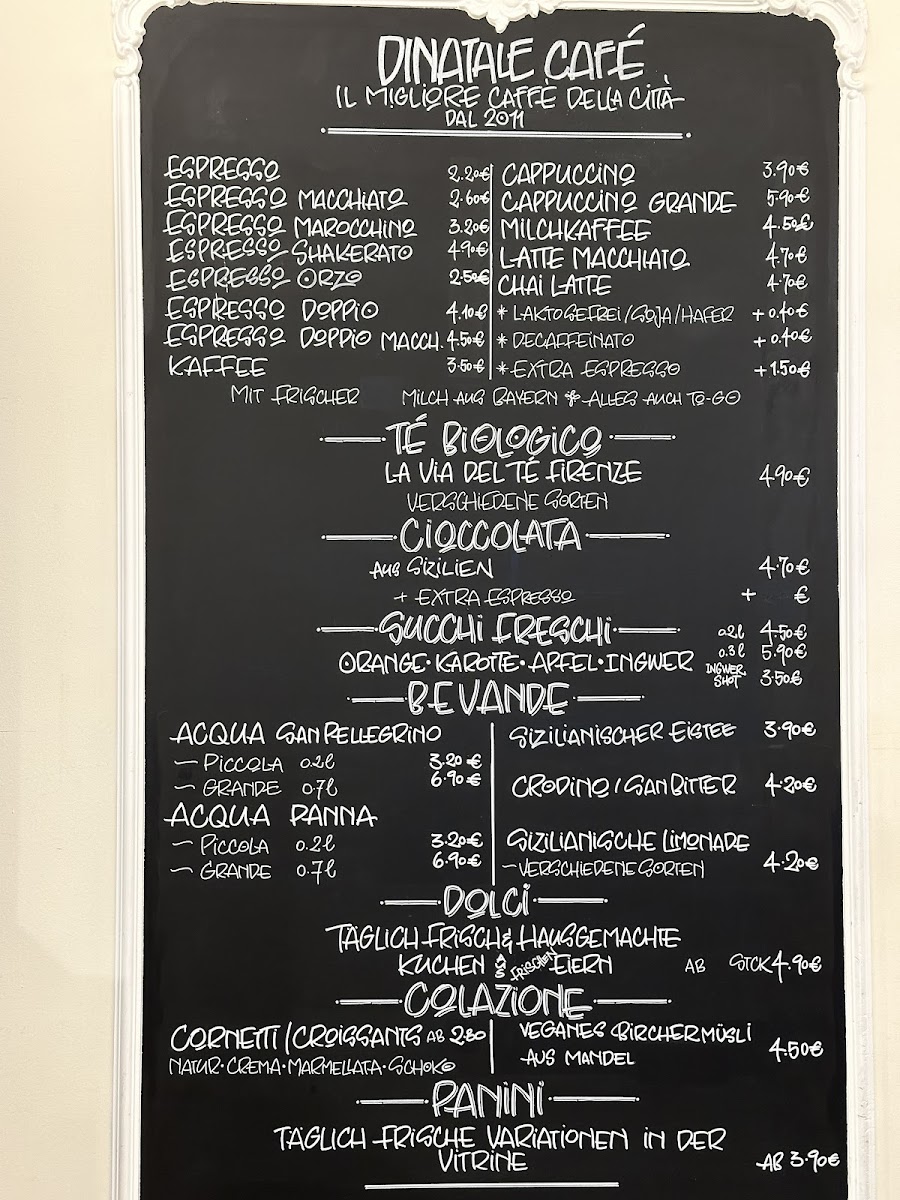 DINATALE CAFÉ
IL MIGLIORE CAFFÈ DELLA CITTÀ
DAL 2011
ESPRESSO 2.20€
ESPRESSO MACCHIATO 2.60€
ESPRESSO MAROCCHINO 3.20€
ESPRESSO SHAKERATO 4.90€
ESPRESSO ORZO 2.50€
ESPRESSO DOPPIO 4.10€
ESPRESSO DOPPIO MACCH. 4.50€
KAFFEE 3.50€
CAPPUCCINO 3.90€
CAPPUCCINO GRANDE 5.90€
MILCHKAFFEE 4.50€
LATTE MACCHIATO 4.70€
CHAI LATTE 4.70€
* LAKTOSEFREI/SOJA/HAFER + 0.40€
* DECAFFEINATO + 0.40€
* EXTRA ESPRESSO + 1.50€
MIT FRISCHER MILCH AUS BAYERN & ALLES AUCH TO-GO
TÉ BIOLOGICO
LA VIA DEL TÉ FIRENZE 4.90€
VERSCHIEDENE SORTEN
CIOCCOLATA
AUS SIZILIEN 4.70€
+ EXTRA ESPRESSO + €
SUCCHI FRESCHI
0.2l 4.50€
0.3l 5.90€
ORANGE · KAROTTE · APFEL · INGWER
INGWER SHOT 3.50€
BEVANDE
ACQUA SAN PELLEGRINO
~ PICCOLA 0.2l 3.20€
~ GRANDE 0.7l 6.90€
ACQUA PANNA
~ PICCOLA 0.2l 3.20€
~ GRANDE 0.7l 6.90€
SIZILIANISCHER EISTEE 3.90€
CRODINO / SANBITTER 4.20€
SIZILIANISCHE LIMONADE
~ VERSCHIEDENE SORTEN 4.20€
DOLCI
TÄGLICH FRISCH & HAUSGEMACHTE
KUCHEN AUS FRISCHEN EIERN AB STCK 4.90€
COLAZIONE
CORNETTI/CROISSANTS AB 2.80
NATUR · CREMA · MARMELLATA · SCHOKO
VEGANES BIRCHERMÜSLI
AUS MANDEL 4.50€
PANINI
TÄGLICH FRISCHE VARIATIONEN IN DER
VITRINE AB 3.90€